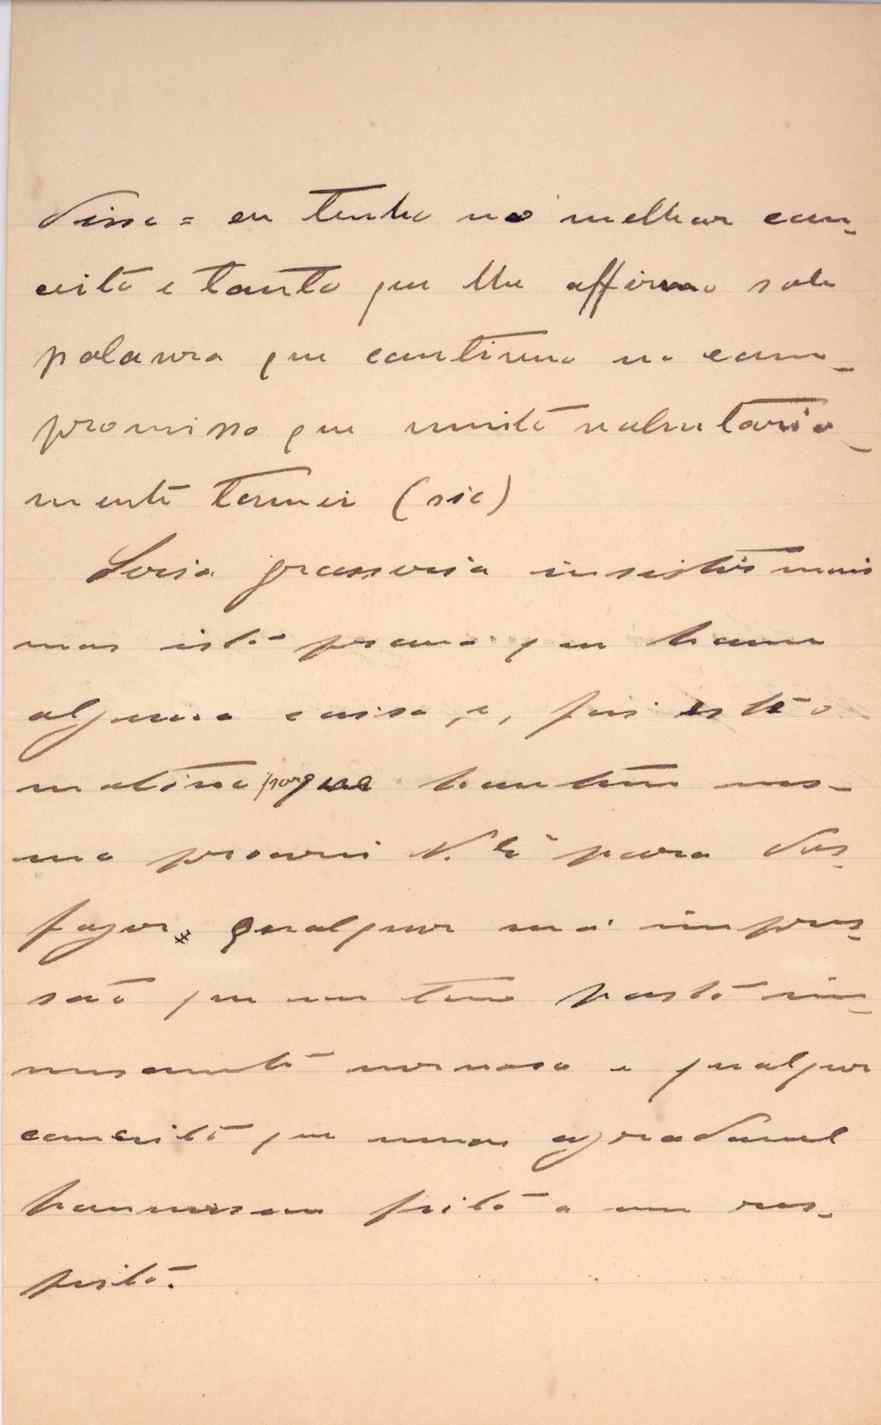 disse = eu tenho no melhor con-
ceito e tanto que lhe affirmo sob
palavra que continuo no com-
promisso que muito voluntaria-
mente tomei (sic)
Seria grosseria insistir mais
mas isto prova que houve
alguma coisa, e, foi este o
motivo porque hontem mes-
mo procurei V. Ex.ª para des-
fazer qualquer má impres-
são que me tem posto im-
mensamente nervoso e qualquer
conceito que menos agradavel
houvessem feito a meu res-
peito.